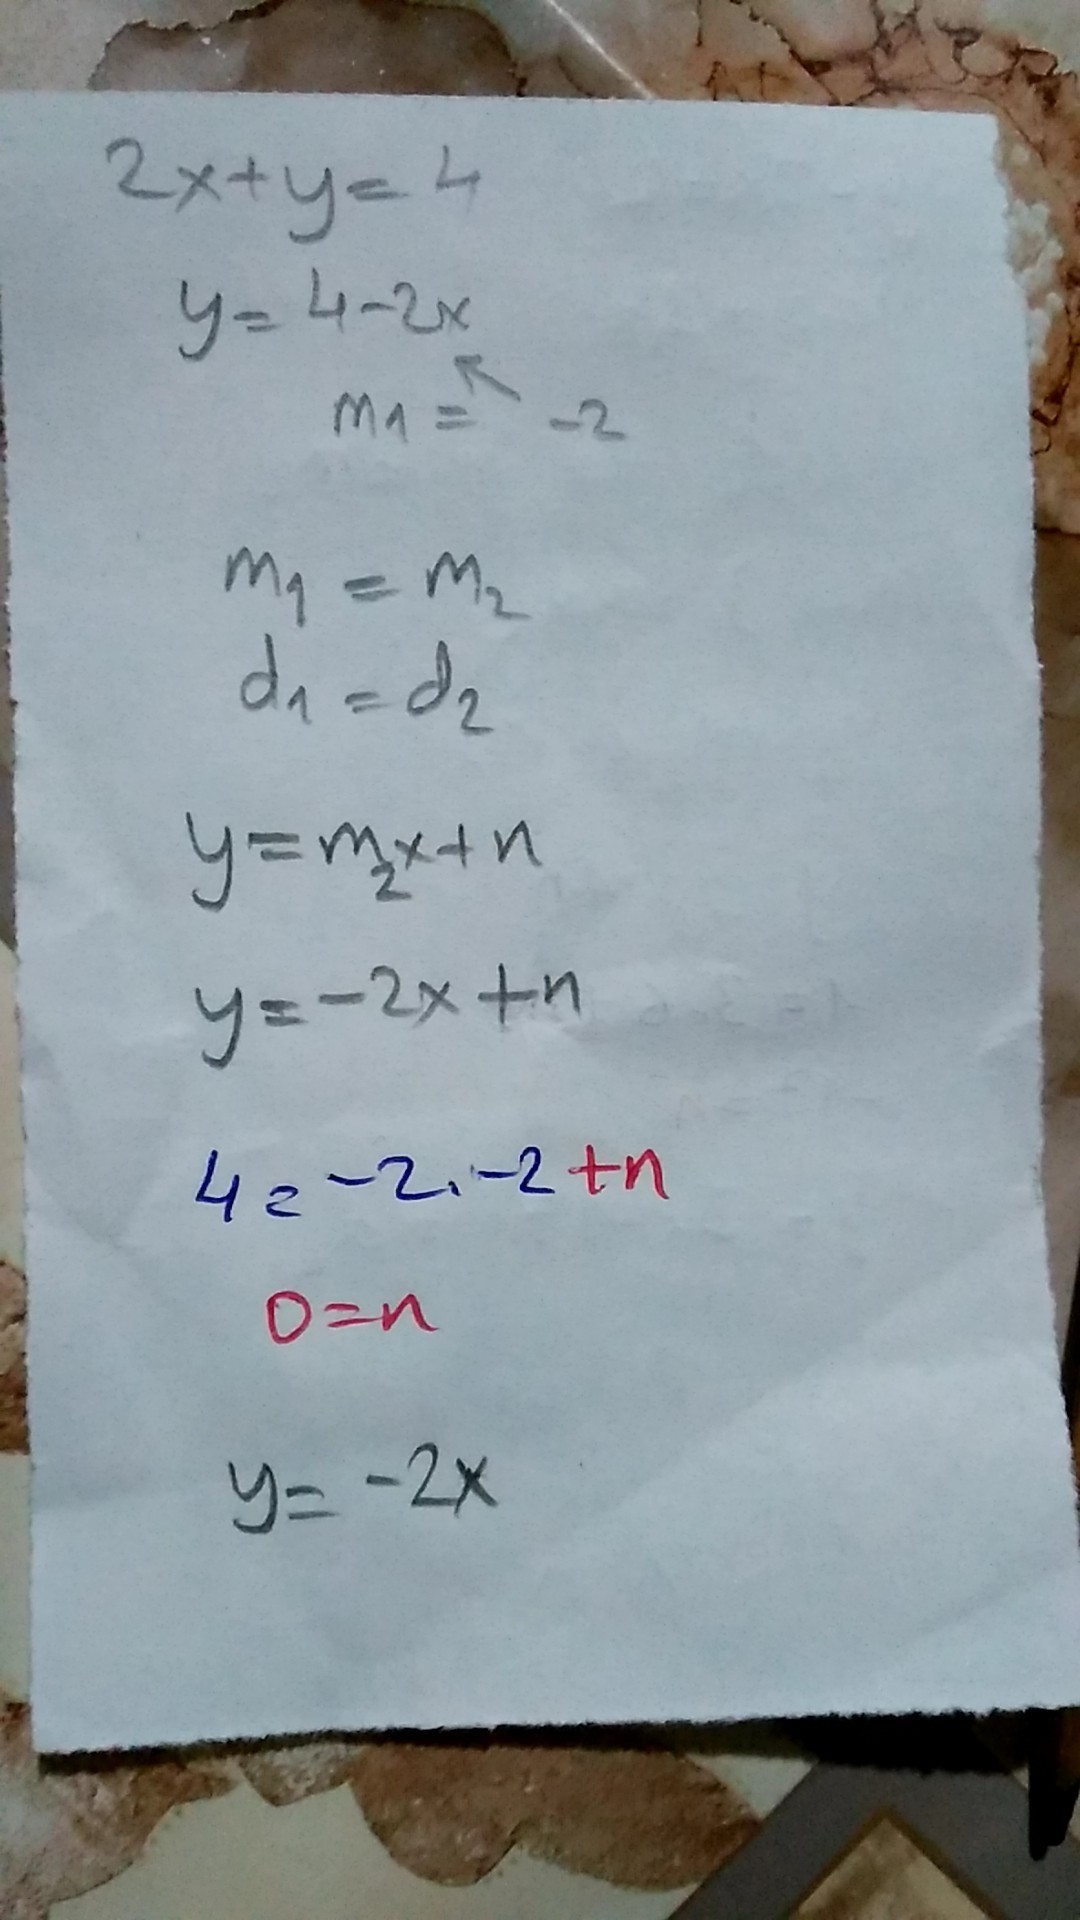 2x+y=4
y=4-2x
m1= -2
m1=m2
d1=d2
y=m2x+n
y=-2x+n
4=-2.-2+n
0=n
y=-2x